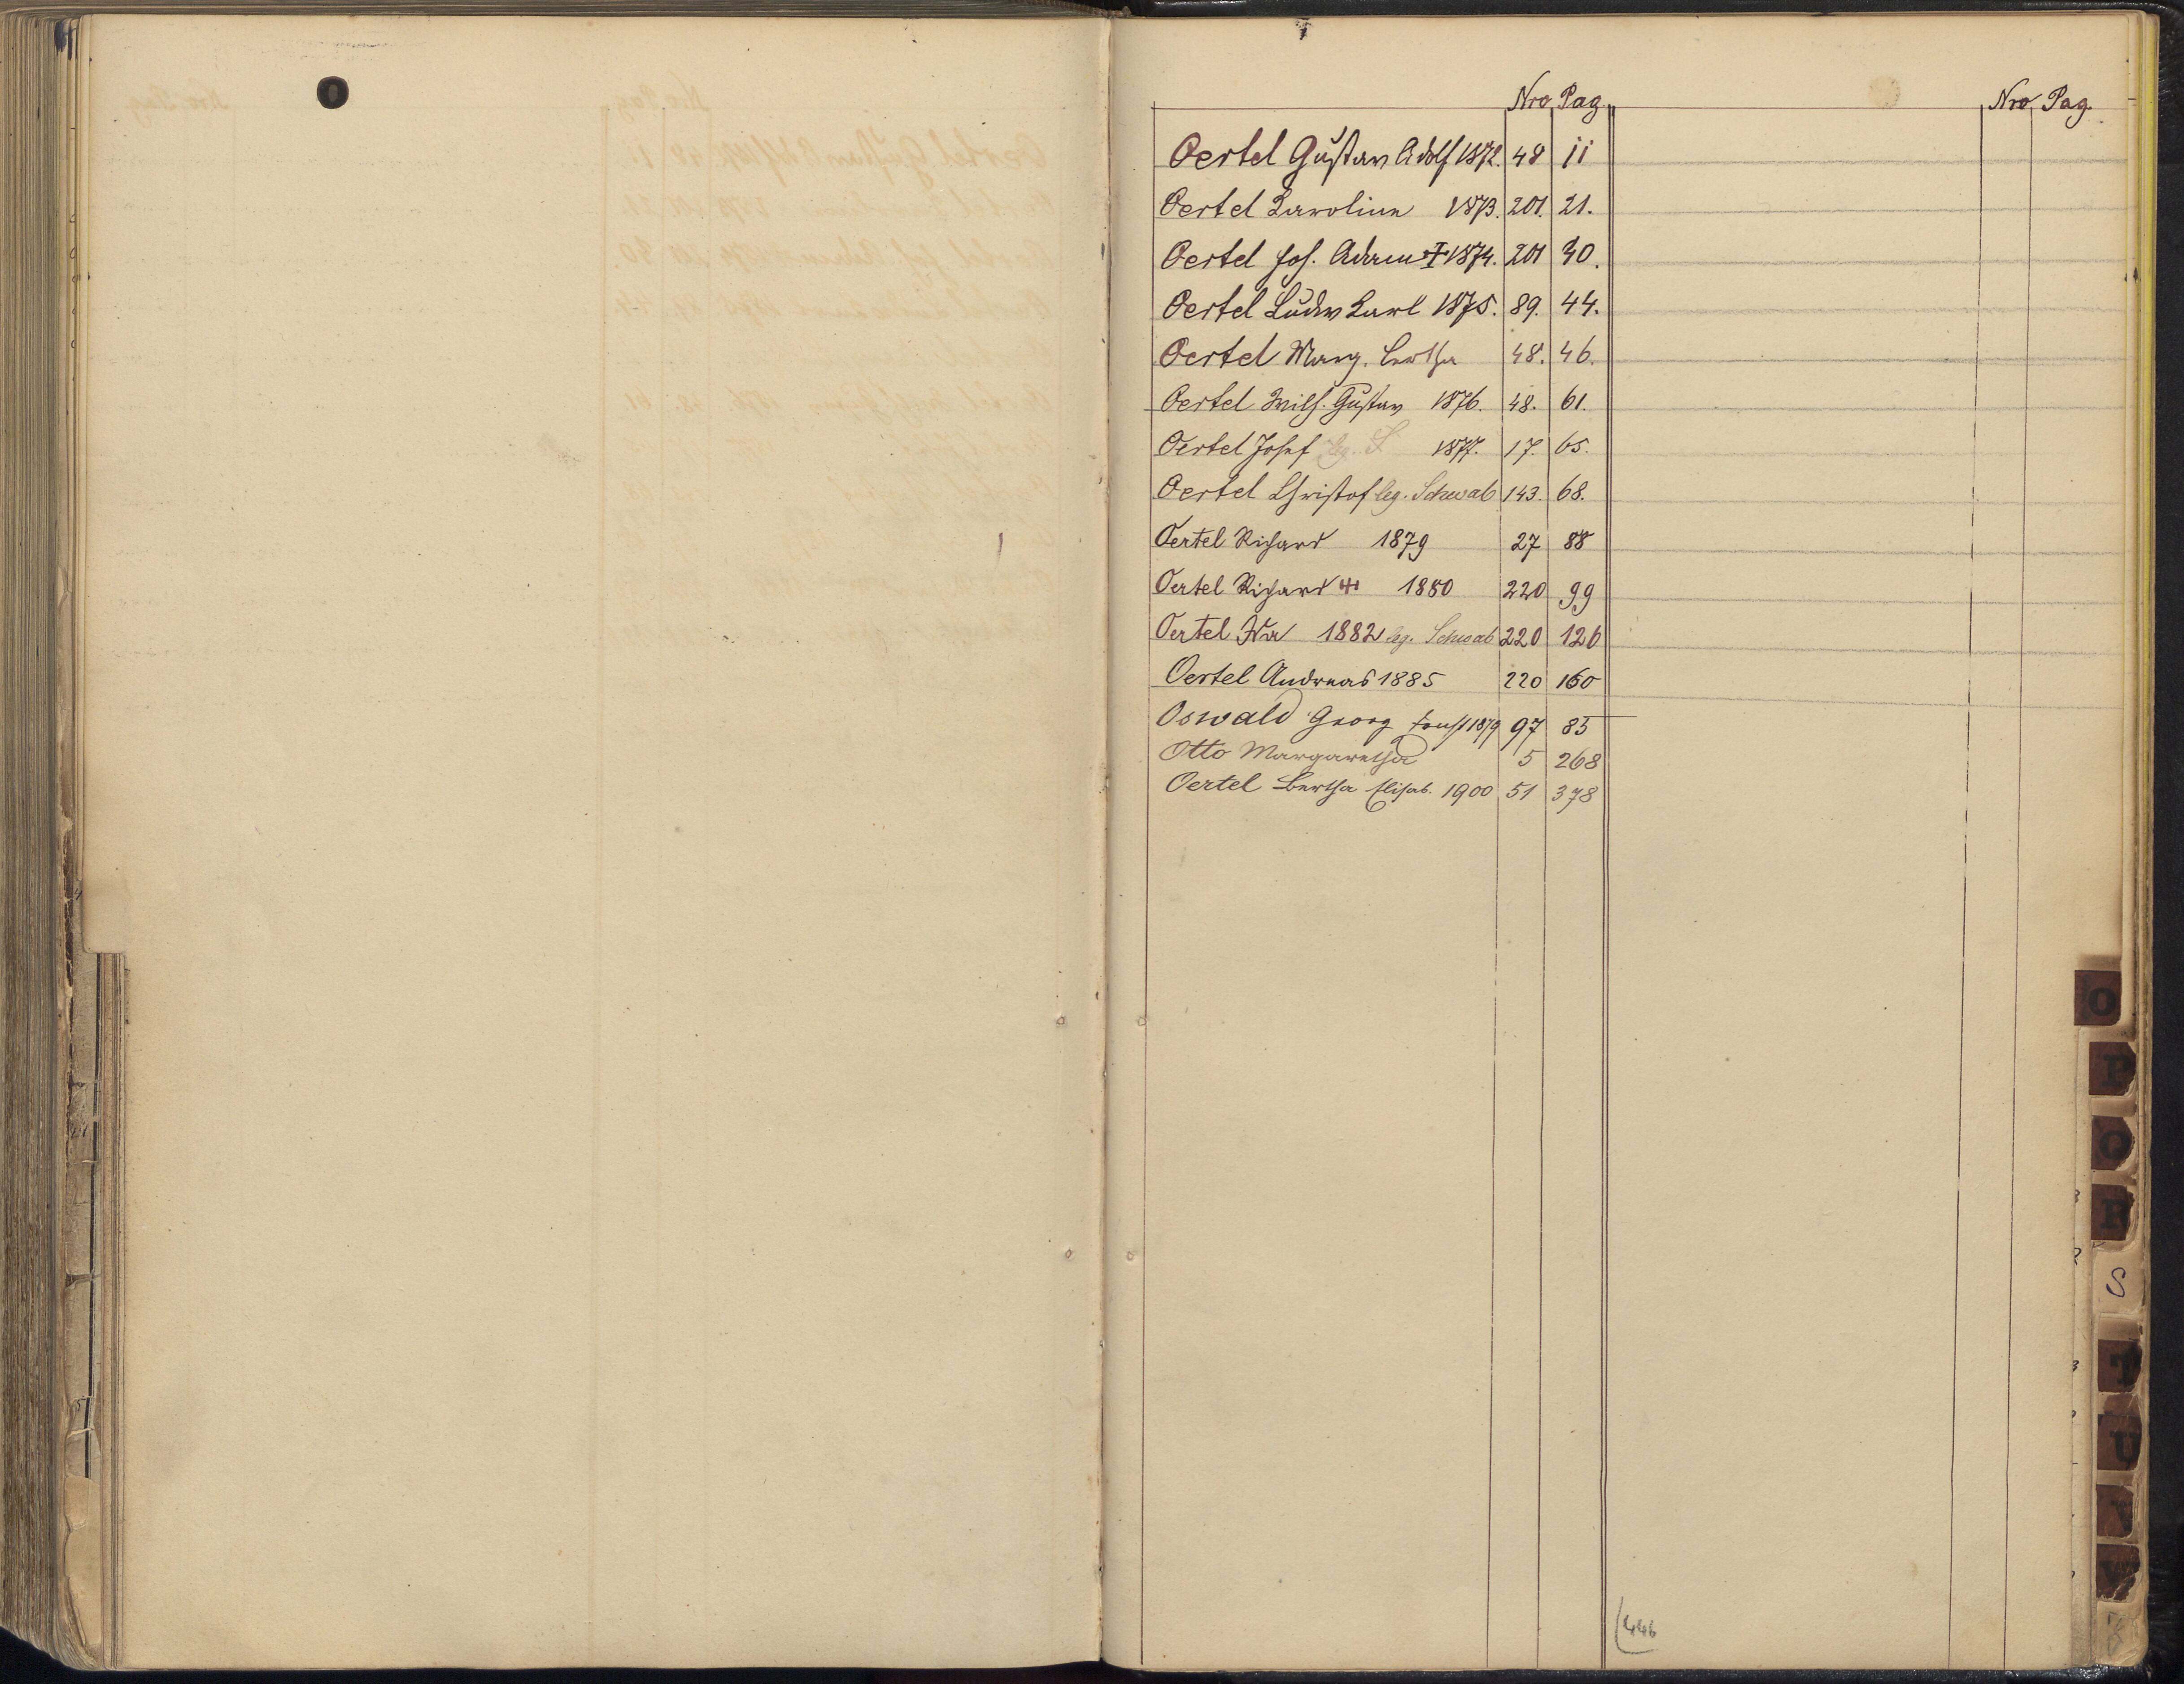 O
Nro Pag. Nro Pag.
Oertel Gustav Adolf 1872. 48 11
Oertel Karoline 1873. 201. 21.
Oertel Joh. Adam ‡ 1874. 201 30.
Oertel Ludw Karl 1875. 89. 44.
Oertel Marg. Bertha 48. 46.
Oertel Wilh. Gustav 1876. 48. 61.
Oertel Josef 1877. 17. 65.
Oertel Christof leg. Schwab 143. 68.
Oertel Richard 1879 27 88
Oertel Richard 1880 220 99
Oertel 1882 leg. Schwab 220 126
Oertel Andreas 1885 220 160
Oswald Georg 1879 97 85
Otto Margaretha 5 268
Oertel Bertha Elisab. 1900 51 378
O
P
Q
R
S
T
U
V
W
446